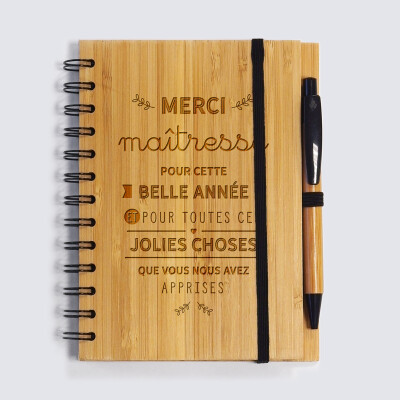 MERCI
maîtresse
POUR CETTE
BELLE ANNÉE
ET POUR TOUTES CE
JOLIES CHOSES
QUE VOUS NOUS AVEZ
APPRISES